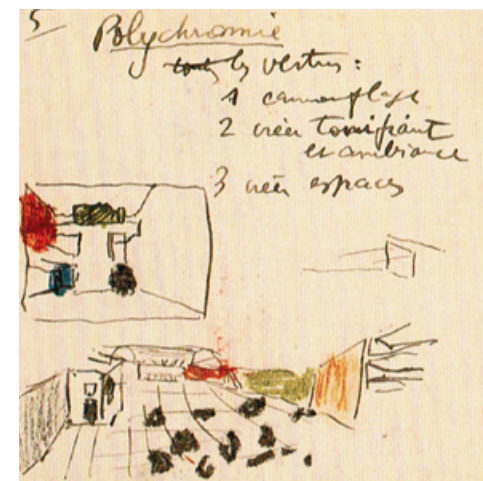 5
Polychromie
les vertus :
1 camouflage
2 créer tonifiant
et ambiance
3 créer espaces